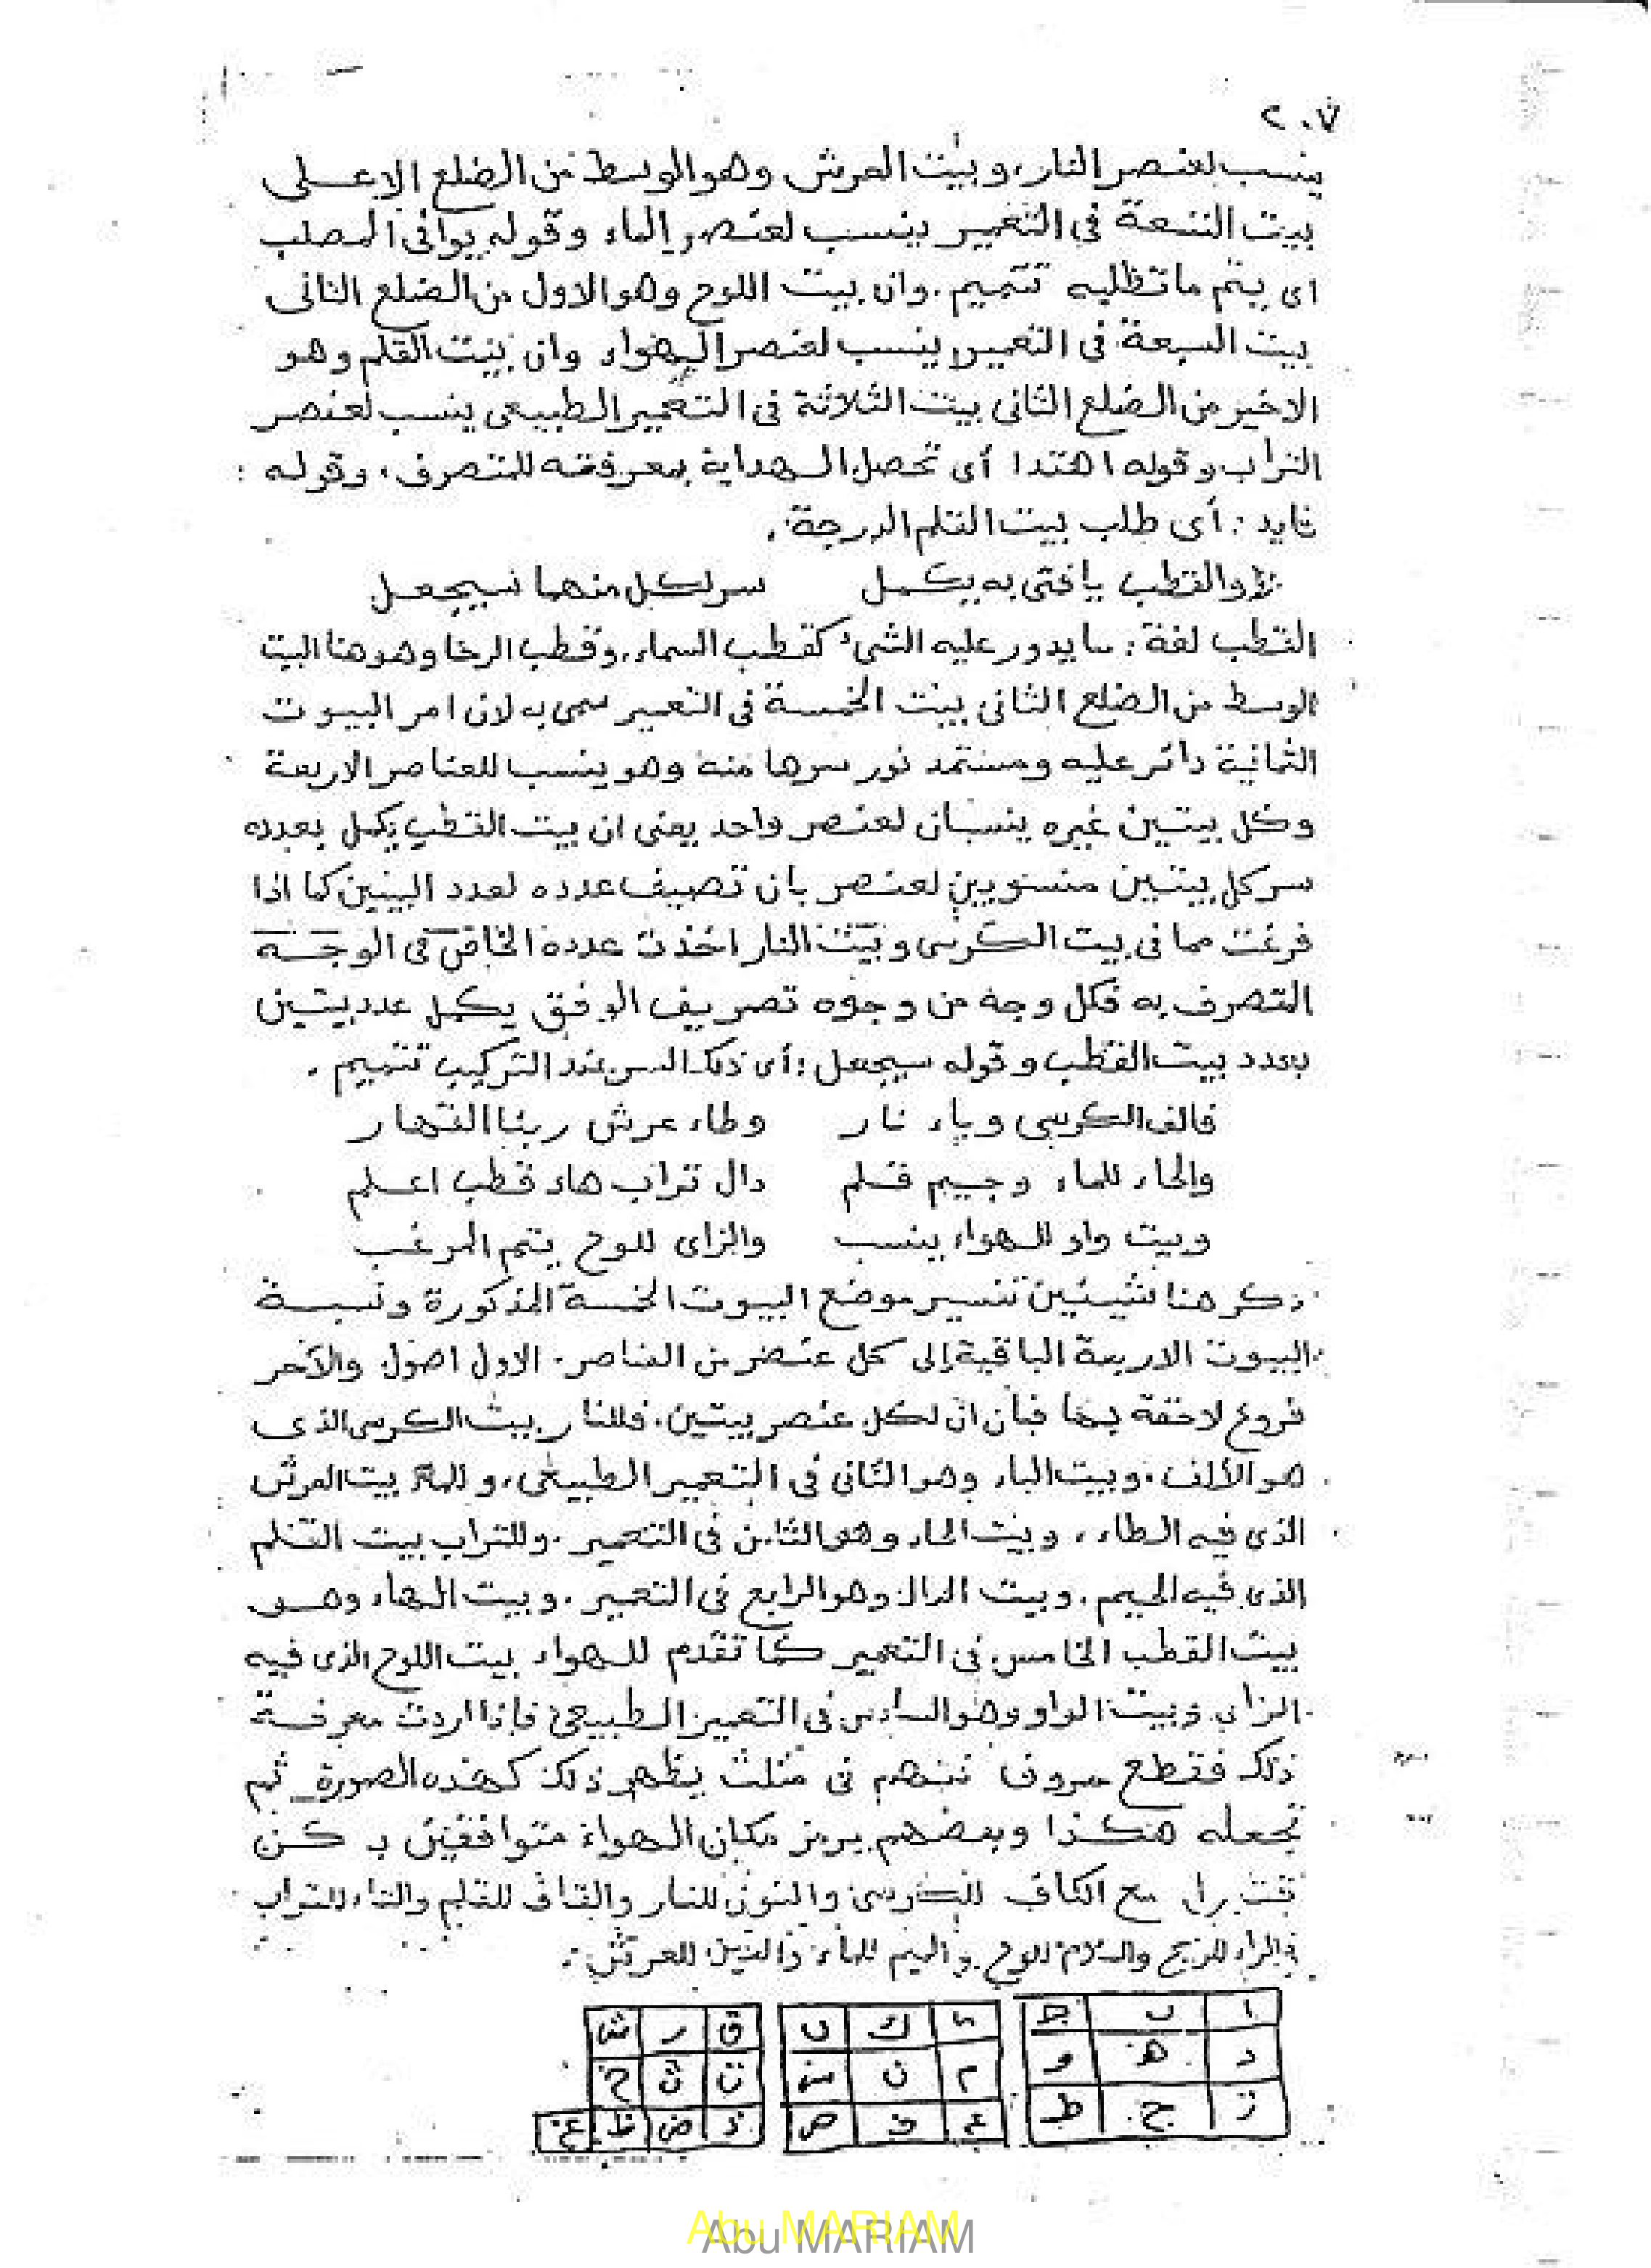 ٢٠٧
ينسب لعنصر النار، وبيت العرش وهو الوسط من الضلع الاعلى
بيت التسعة في التعمير ينسب لعنصر الماء وقوله يوافى المطلب
اى يتم ما تطلبه تتميم. وان بيت اللوح وهو الاول من الضلع الثانى
بيت السبعة في التعمير ينسب لعنصر الهواء وان بيت القلم وهو
الاخير من الضلع الثانى بيت الثلاثة في التعمير الطبيعى ينسب لعنصر
التراب وقوله اهتدا أى تحصل الهداية بمعرفته للمتصرف، وقوله :
أى طلب بيت القلم الدرجة.
والقطب يا فتى به يكمل سر لكل منهما سيجعل
القطب لغة : ما يدور عليه الشئ كقطب السماء، وقطب الرحا وهو هنا البيت
الوسط من الضلع الثانى بيت الخمسة في التعمير سمى به لان امر البيوت
الثمانية دائر عليه ومستمد نور سرها منه وهو ينسب للعناصر الاربعة
وكل بيتين غيره ينسبان لعنصر واحد يعنى ان بيت القطب يكمل بعدده
سر كل بيتين منسوبين لعنصر بان تضيف عدده لعدد البيتين كما اذا
فرغت مما في بيت الكرسى وبيت النار اخذت عدده الخاص في الوجه
المتصرف به فكل وجه من وجوه تصريف الوفق يكمل عدد بيتين
بعدد بيت القطب وقوله سيجعل : أى ذلك السر عند التركيب تتميم .
فالف الكرسي وباء نار وطاء عرش ربنا القهار
والحاء للماء وجيم قلم دال تراب هاء قطب اعلم
وبيت واو للهواء ينسب والزاى للوح يتم المرغب
ذكر هنا شيئين تفسير موضع البيوت الخمسة المذكورة ونسبة
البيوت الاربعة الباقية إلى كل عنصر من العناصر. الاول اصول والآخر
فروع لاحقة بها فبان ان لكل عنصر بيتين. فللنار بيت الكرسى الذى
هو الألف. وبيت الباء وهو الثانى في التعمير الطبيعى، وللماء بيت العرش
الذى فيه الطاء، وبيت الحاء وهو الثامن في التعمير. وللتراب بيت القلم
الذى فيه الجيم. وبيت الدال وهو الرابع في التعمير. وبيت الهاء وهو
بيت القطب الخامس في التعمير كما تقدم للهواء بيت اللوح الذى فيه
الزاى وبيت الواو وهو السادس في التعمير الطبيعى فإذا اردت معرفة
ذلك فقطع حروف في مثلث يظهر ذلك كهذه الصورة ثم
تجعله هكذا وبعضهم يرمز مكان الهواء متوافقين بـ كن
مع الكاف للكرسى والنون للنار والقاف للقلم والتاء للتراب
والراء للريح واللام للوح والميم للماء والشين للعرش.
ا ب ج ى ك ل ق ر ش
د هـ و م ن س ت ث خ
ز ح ط ع ف ص ذ ض ظ غ
Abu MARIAM
Abu MARIAM